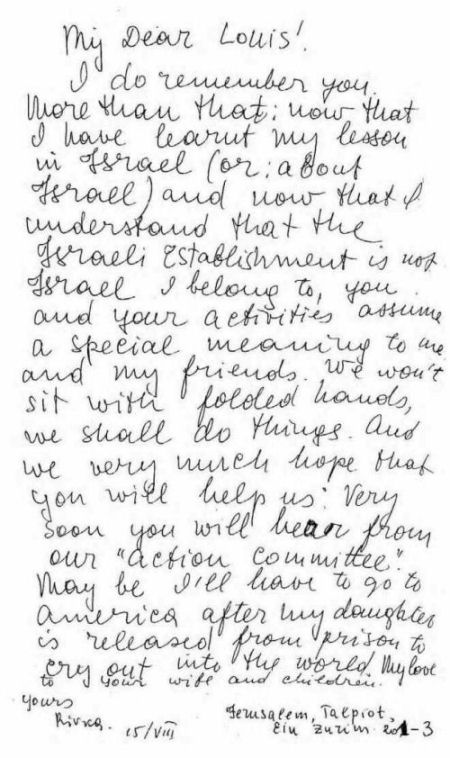 My Dear Louis!
I do remember you.
More than that: now that
I have learnt my lesson
in Israel (or: about
Israel) and now that I
understand that the
Israeli Establishment is not
Israel I belong to, you
and your activities assume
a special meaning to me
and my friends. We won't
sit with folded hands,
we shall do things. And
we very much hope that
you will help us. Very
soon you will hear from
our "action committee".
May be I'll have to go to
America after my daughter
is released from prison to
cry out into the world My love
to your wife and children.
yours
Rivka. 15/VIII
Jerusalem, Talpiot,
Ein Zurim